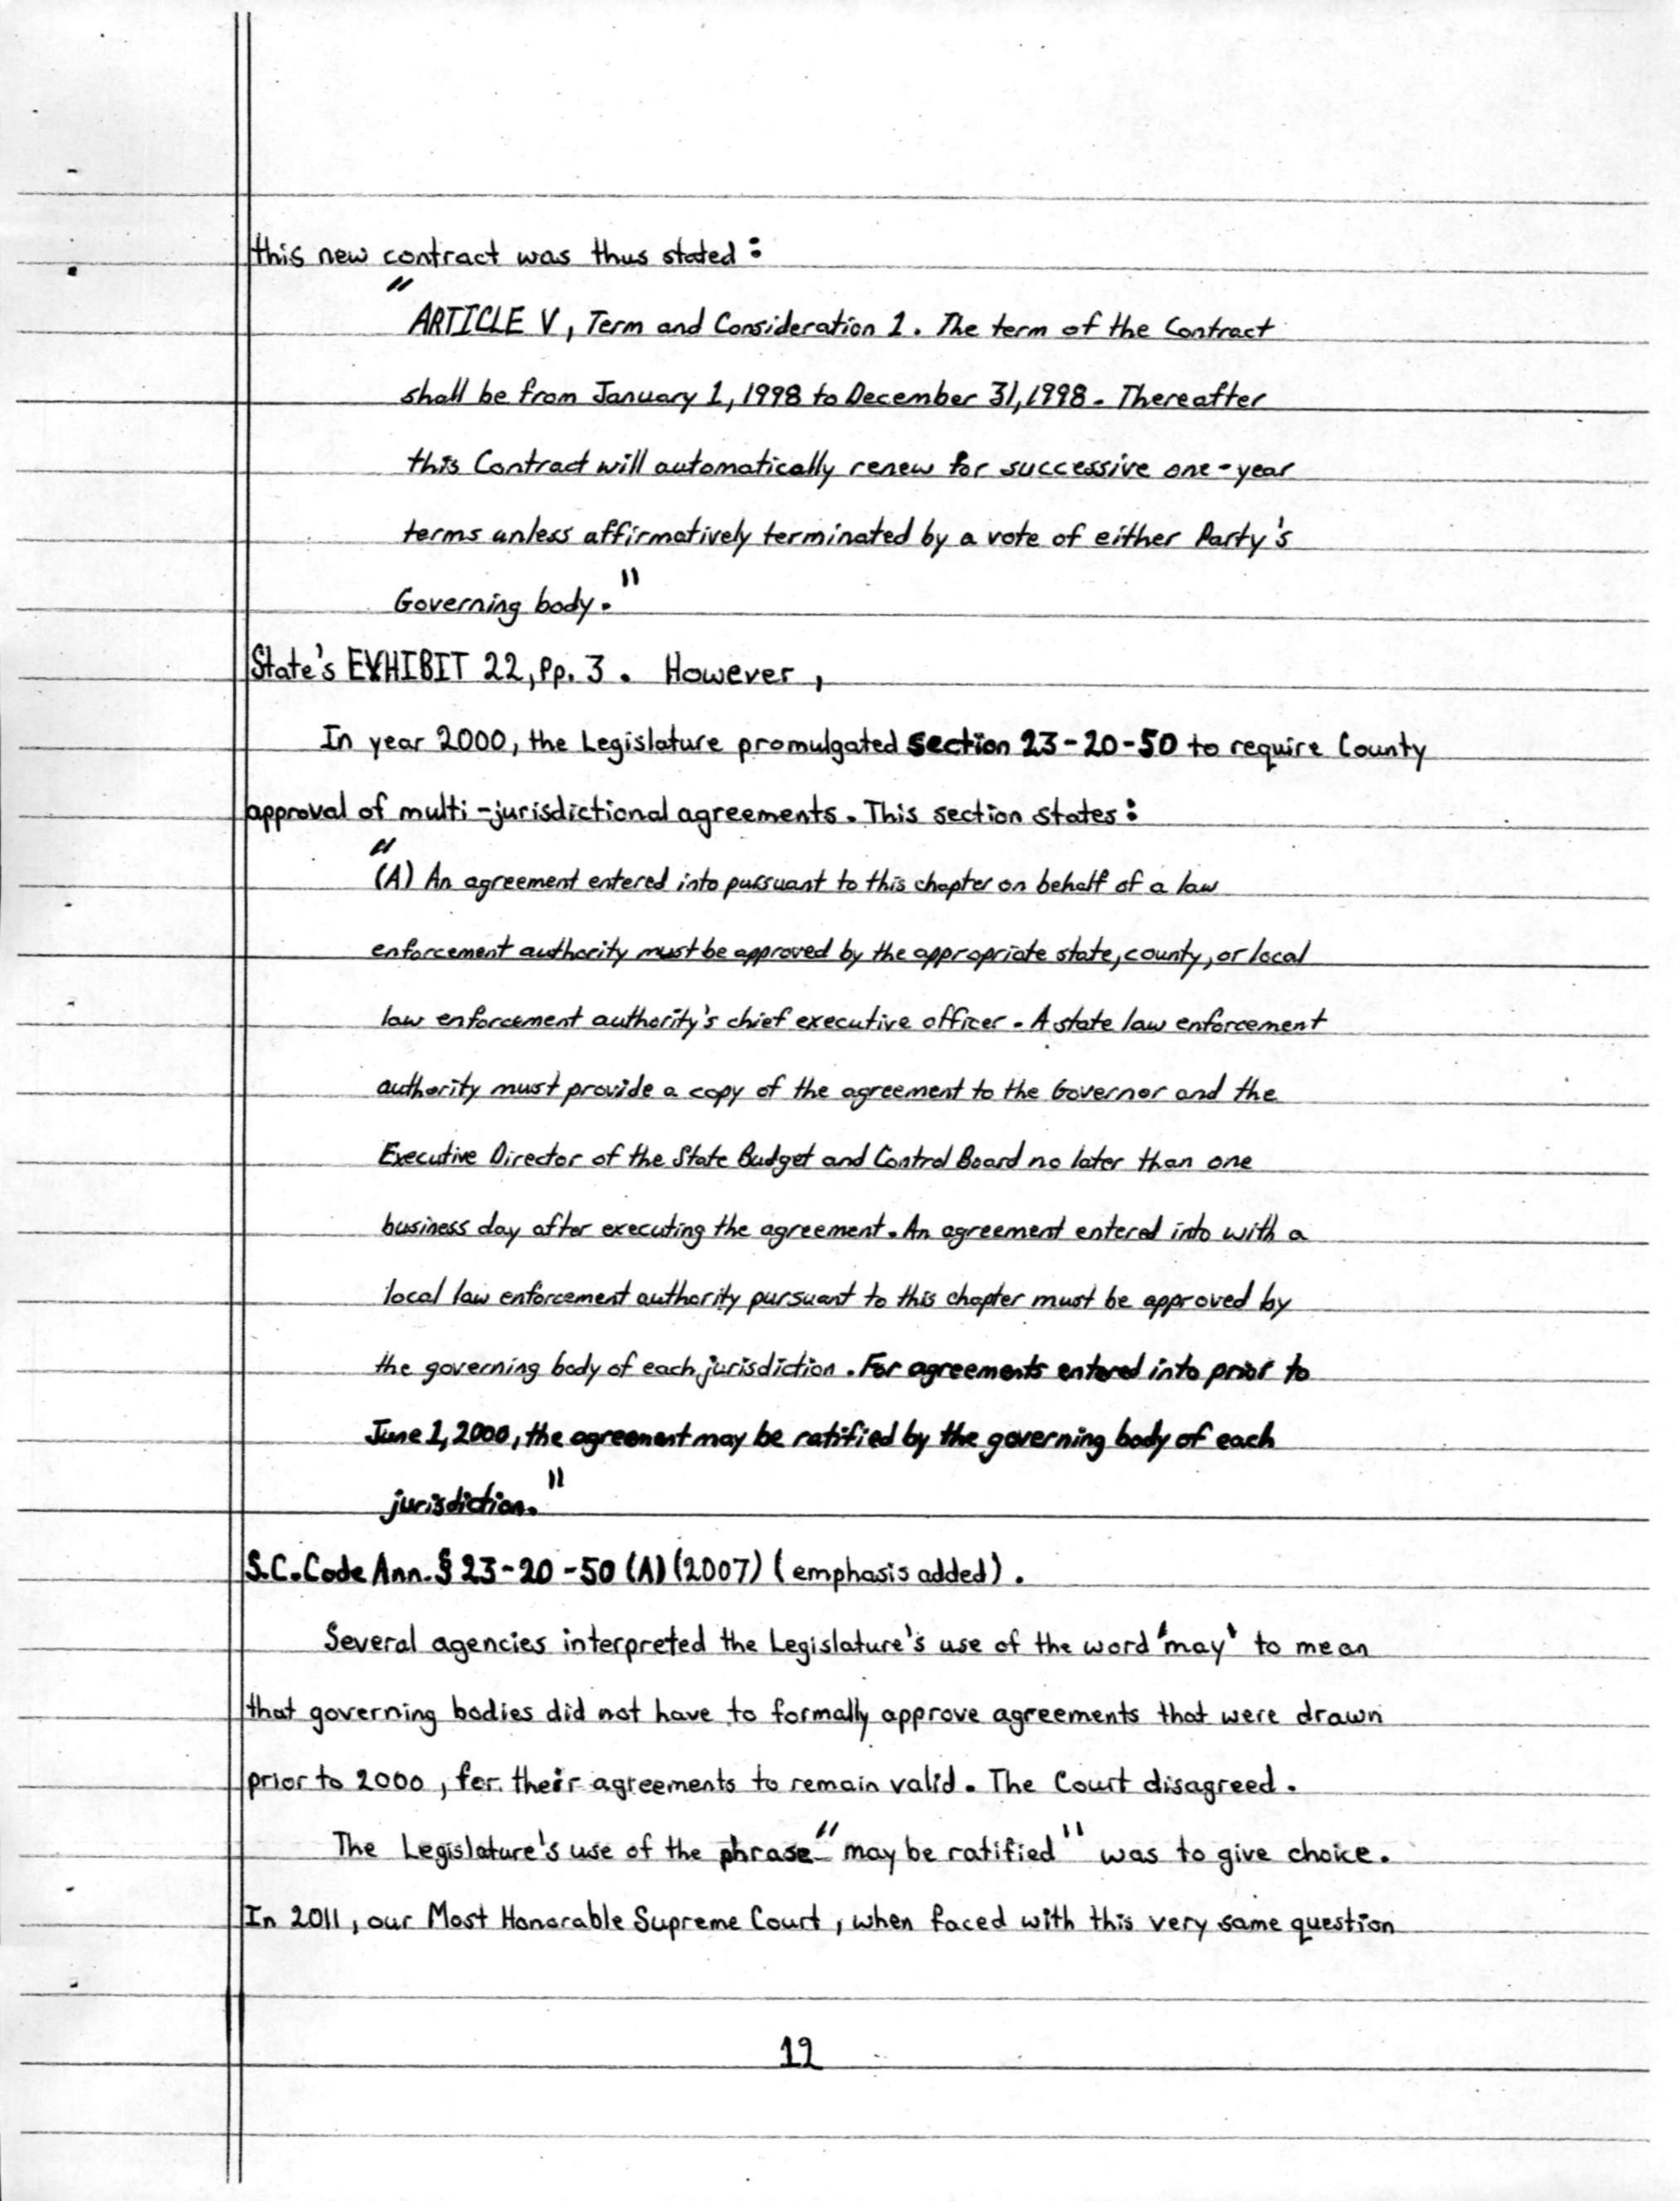 this new contract was thus stated:
"ARTICLE V, Term and Consideration 1. The term of the Contract
shall be from January 1, 1998 to December 31, 1998. Thereafter
this Contract will automatically renew for successive one-year
terms unless affirmatively terminated by a vote of either Party's
Governing body."
State's EXHIBIT 22, Pp. 3. However,
In year 2000, the Legislature promulgated section 23-20-50 to require County
approval of multi-jurisdictional agreements. This section states:
"(A) An agreement entered into pursuant to this chapter on behalf of a law
enforcement authority must be approved by the appropriate state, county, or local
law enforcement authority's chief executive officer. A state law enforcement
authority must provide a copy of the agreement to the Governor and the
Executive Director of the State Budget and Control Board no later than one
business day after executing the agreement. An agreement entered into with a
local law enforcement authority pursuant to this chapter must be approved by
the governing body of each jurisdiction. For agreements entered into prior to
June 1, 2000, the agreement may be ratified by the governing body of each
jurisdiction."
S.C. Code Ann. § 23-20-50 (A) (2007) (emphasis added).
Several agencies interpreted the Legislature's use of the word 'may' to mean
that governing bodies did not have to formally approve agreements that were drawn
prior to 2000, for their agreements to remain valid. The Court disagreed.
The Legislature's use of the phrase "may be ratified" was to give choice.
In 2011, our Most Honorable Supreme Court, when faced with this very same question
12